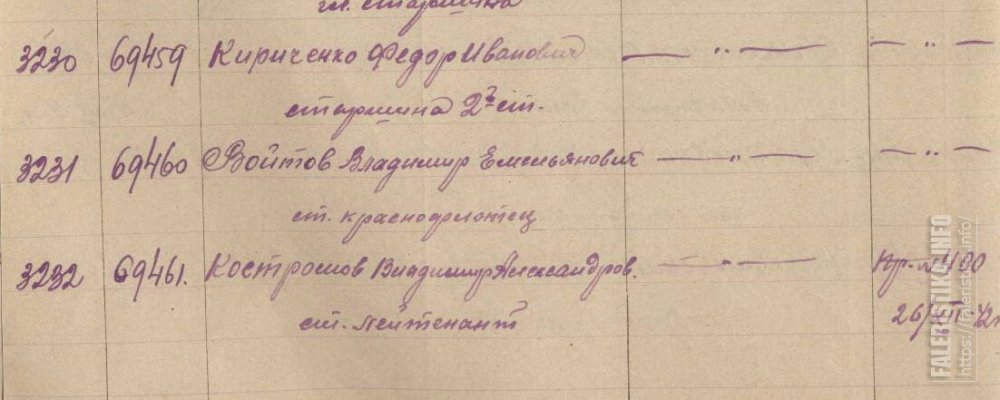 гл. старшина
3230 69459 Кириченко Федор Иванович — " — — " —
старшина 2й ст.
3231 69460 Войтов Владимир Емельянович — " — — " —
ст. краснофлотец
3232 69461. Костромов Владимир Александров. — " — Пр. № 400
ст. лейтенант 26/
FALERISTIKA.INFO
https://faleristika.info/